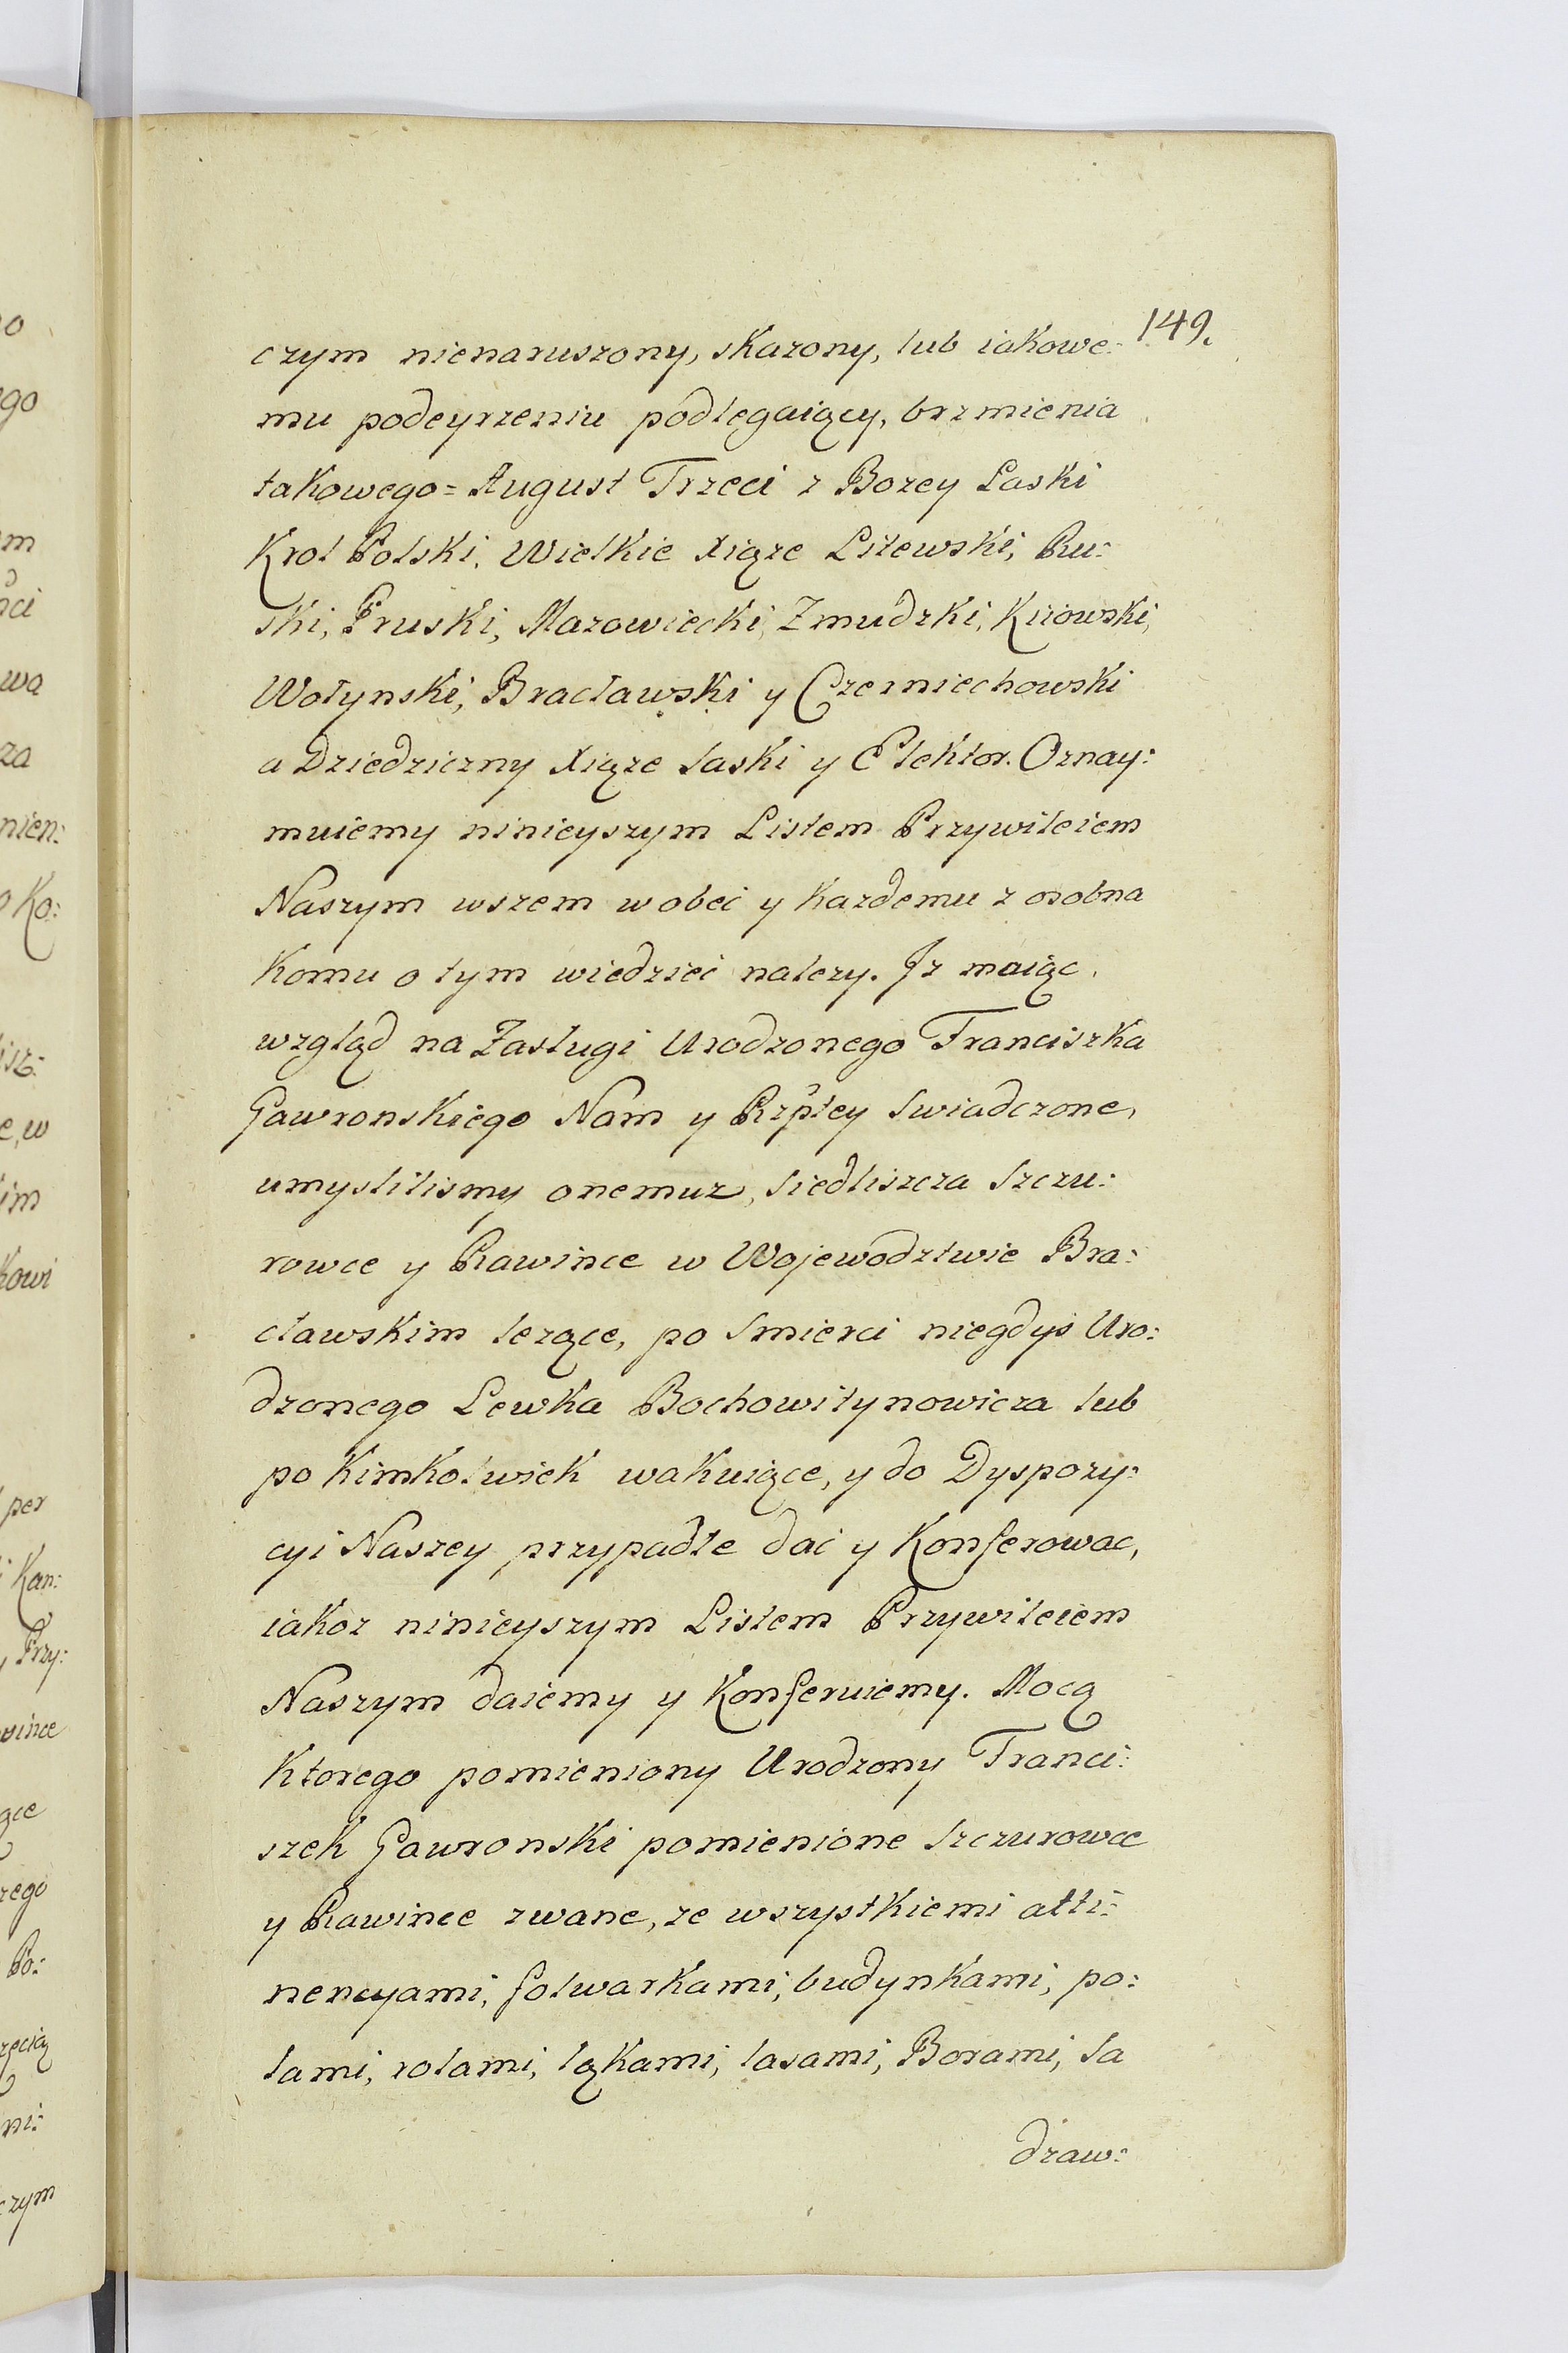 149.
czym nienaruszony, skazony, lub iakowe:
mu podeyrzeniu podlegaiący, brzmienia
takowego = August Trzeci z Bozey Laski
Krol Polski, Wielkie Xiąze Litewski, Ru:
ski, Pruski, Mazowiecki, Zmudzki, Kiiowski,
Wołynski, Bracławski y Czerniechowski
a Dziedziczny Xiąze Saski y Elektor. Oznay:
muiemy ninieyszym Listem Przywileiem
Naszym wszem wobec y kazdemu z osobna
komu o tym wiedzieć nalezy. Iz maiąc
wzgląd na Zasługi Urodzonego Franciszka
Gawronskiego Nam y Rzptey Swiadczone,
umyslilismy onemuz, Siedliszcza Szczu:
rowce y Rawince w Wojewodztwie Bra:
cławskim lezące, po Smierci niegdys Uro:
dzonego Lewka Bochowitynowicza lub
po kimkolwiek wakuiące, y do Dyspozy:
cyi Naszey przypadłe dać y Konferowac,
iakoz ninieyszym Listem Przywileiem
Naszym daiemy y Konferuiemy. Mocą
Ktorego pomieniony Urodzony Franci:
szek Gawronski pomienione Szczurowce
y Rawince zwane, ze wszystkiemi atti:
nencyami, folwarkami, budynkami, po:
lami, rolami, ląkami, lasami, Borami, Sa
dzaw: